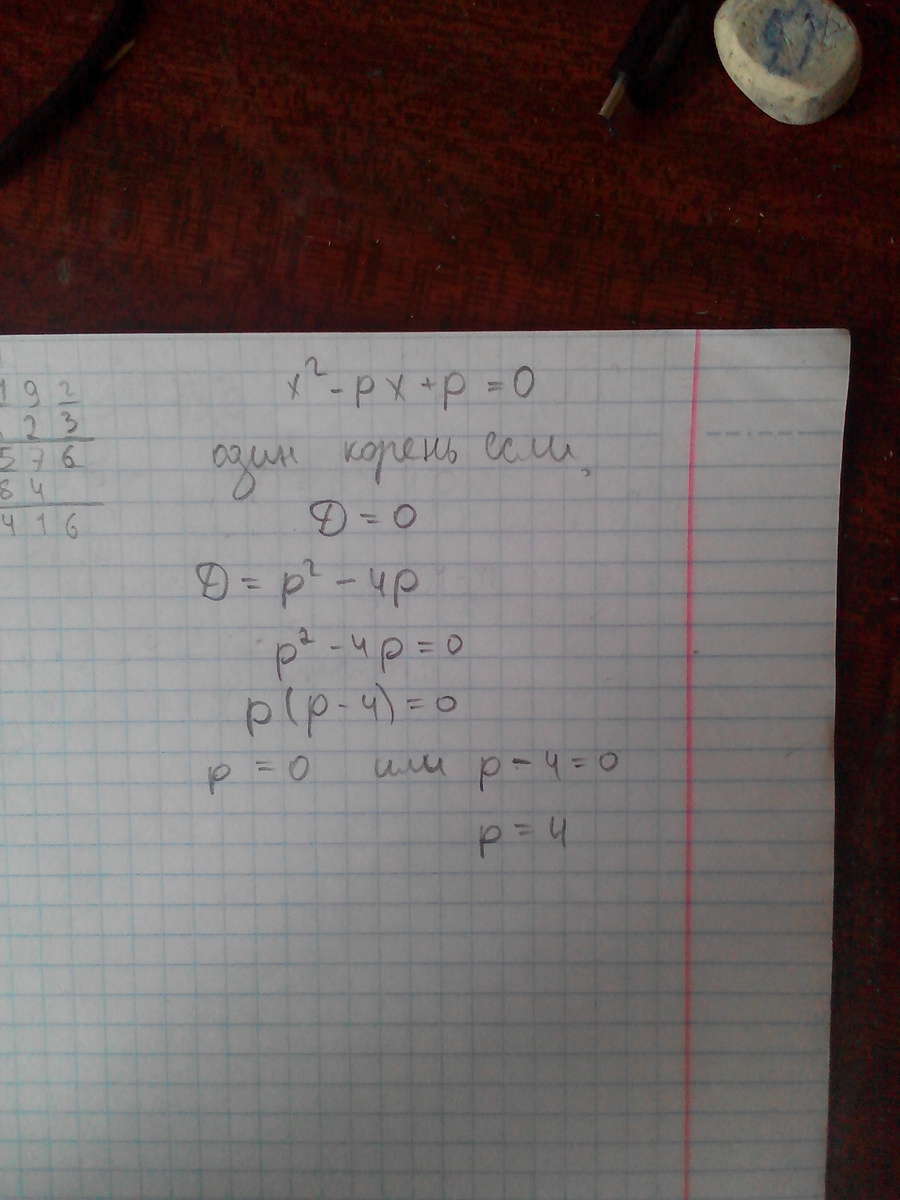 192
23
576
84
416
x² - px + p = 0
один корень если,
D = 0
D = p² - 4p
p² - 4p = 0
p(p - 4) = 0
p = 0 или p - 4 = 0
p = 4